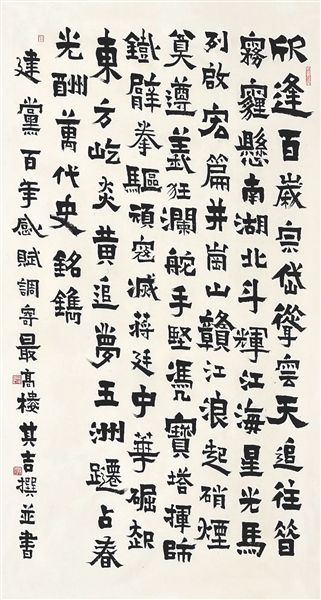 欣逢百歲宗岱聳雲天追往昔
霧霾懸南湖北斗輝江海星光馬
列啟宏篇井崗山贛江浪起硝煙
奠遵義狂瀾舵手堅憑寶塔揮師
鐵臂拳驅頑寇滅蔣廷中華崛起
東方屹炎黃追夢五洲躚占春
光酬萬代史銘鐫
建黨百年感賦調寄最高樓其吉撰並書